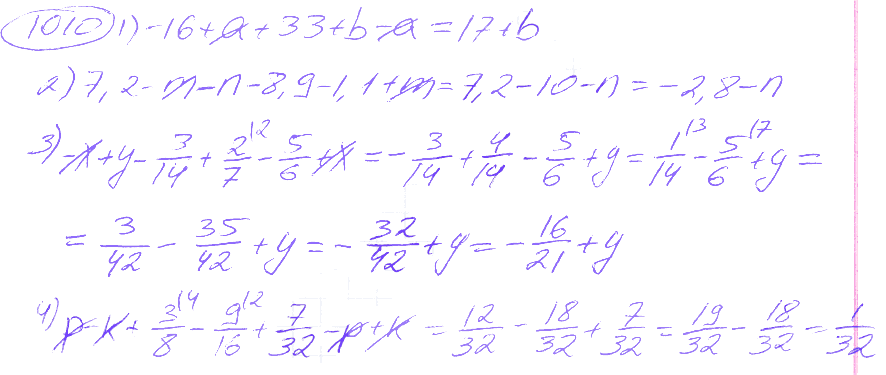 1010 1) -16+a+33+b-a=17+b
2) 7,2-m-n-8,9-1,1+m=7,2-10-n=-2,8-n
3) -x+y-3/14+2/7^{12}-5/6+x=-3/14+4/14-5/6+y=1/14^{13}-5/6^{17}+y=
=3/42-35/42+y=-32/42+y=-16/21+y
4) p-k+3/8^{14}-9/16^{12}+7/32-p+k=12/32-18/32+7/32=19/32-18/32=1/32